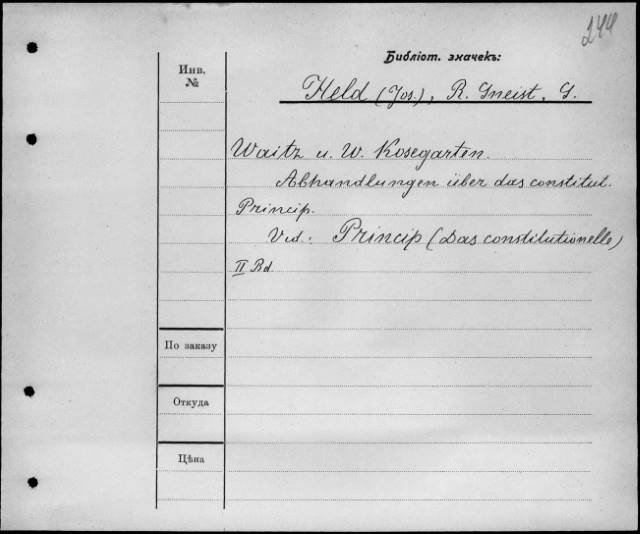 244
Библіот. значекъ:
Инв.
№
Held (Jos.), R. Gneist, G.
Waitz u. W. Kosegarten.
Abhandlungen über das constitut.
Princip.
Vid.: Princip (Das constitutionelle)
II Bd.
По заказу
Откуда
Цѣна